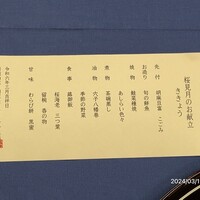 桜見月のお献立
ききょう
先付 胡麻豆富 こごみ
お造り 旬の鮮魚
焼物 鰆菜種焼
あしらい色々
煮物 茶碗蒸し
油物 六千八椿巻
季節の野菜
食事 鶏御飯
桜海老 三つ葉
留椀 香の物
甘味 わらび餅 黒蜜
令和六年三月
2024/03/1